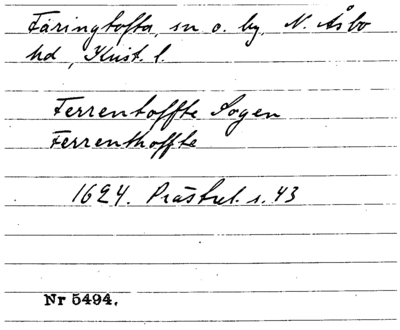 Färingtofta, sn o. by, N. Åsbo
hd, Krist. l.
Ferrentoffte Sogen
Ferrenthoffte
1624. Prästrel. s. 43
Nr 5494.